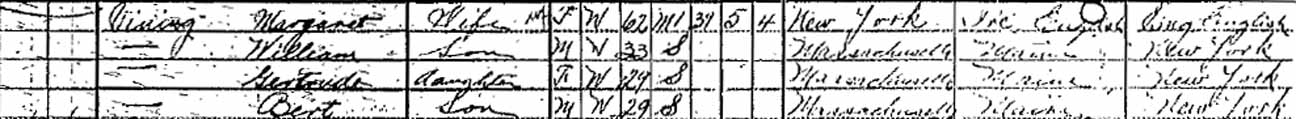 Vining Margaret Wife F W 62 M1 37 5 4 New York Ire English Eng English
— William Son M W 33 S Massachusetts Maine New York
— Gertrude daughter F W 29 S Massachusetts Maine New York
— Bert Son M W 29 S Massachusetts Maine New York